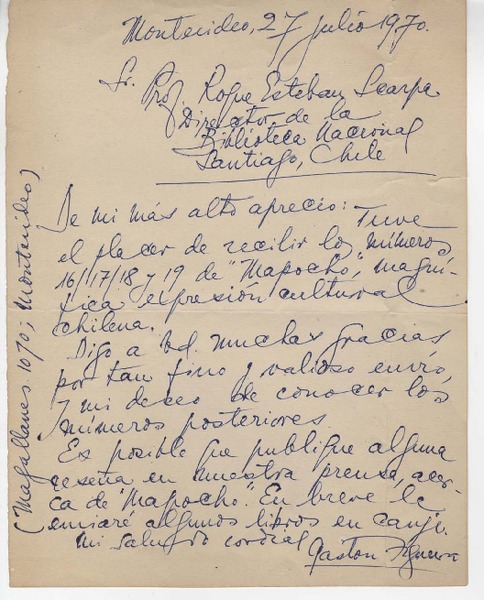 Montevideo, 27 julio 1970.
Sr. Prof. Roque Esteban Scarpa
Director de la
Biblioteca Nacional
Santiago, Chile
De mi más alto aprecio: Tuve
el placer de recibir los números
16/17/18 y 19 de "Mapocho", magní-
fica expresión cultural
chilena.
Digo a Ud. muchas gracias
por tan fino y valioso envío,
y mi deseo de conocer los
números posteriores.
Es posible que publique alguna
reseña en nuestra prensa, acer-
ca de "Mapocho". En breve le
enviaré algunos libros en canje.
Mi saludo cordial
Gastón Figueira
(Magallanes 1070; Montevideo)